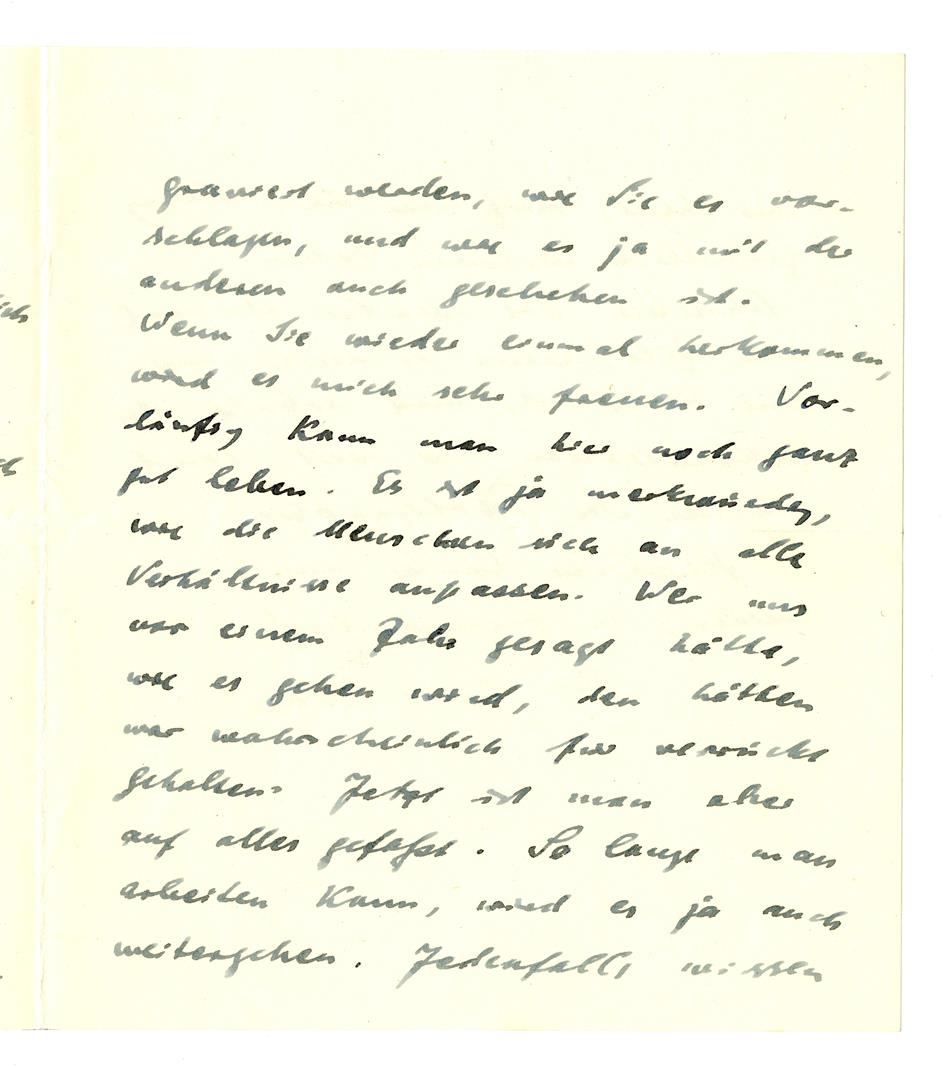 graviert werden, wie Sie es vor-
schlagen, und wie es ja mit der
anderen auch geschehen ist.
Wenn Sie wieder einmal herkommen,
wird es mich sehr freuen. Vor-
läufig kann man hier noch ganz
gut leben. Es ist ja merkwürdig,
wie die Menschen sich an alle
Verhältnisse anpassen. Wer uns
vor einem Jahr gesagt hätte,
wie es gehen wird, den hätten
wir wahrscheinlich für verrückt
gehalten. Jetzt ist man aber
auf alles gefaßt. So lange man
arbeiten kann, wird es ja auch
weitergehen. Jedenfalls wissen